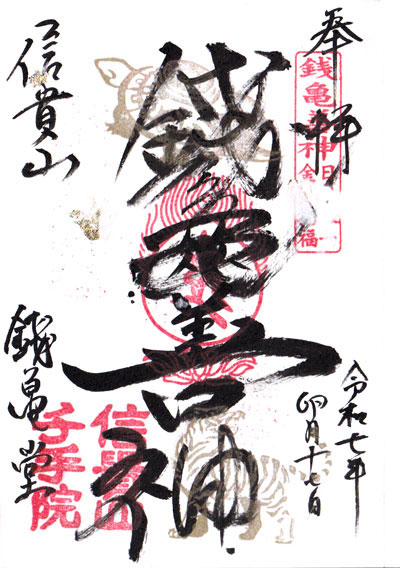 奉拝
銭亀善神
令和七年
卯月十七日
信貴山
銭亀堂
信貴山
千手院